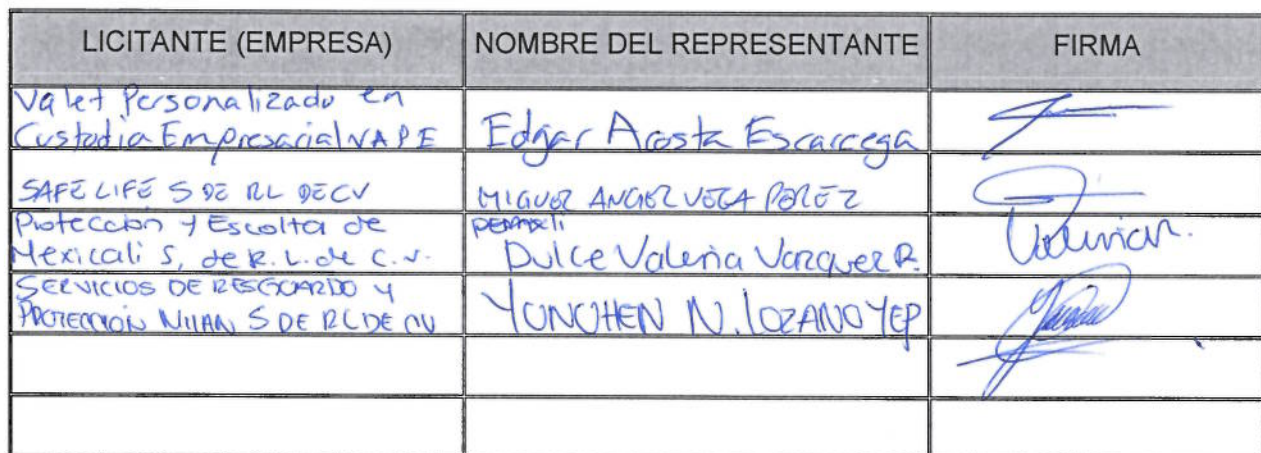 LICITANTE (EMPRESA) NOMBRE DEL REPRESENTANTE FIRMA
Valet Personalizado en
Custodia Empresarial VAPE Edgar Acosta Escarcega
SAFE LIFE S DE RL DE CV MIGUEL ANGEL VEGA PEREZ
Protección y Escolta de
Mexicali S. de R.L. de C.V. Dulce Valeria Vazquez R.
SERVICIOS DE RESGUARDO Y
PROTECCIÓN NIIAN S DE RL DE CV YUNCHEN N. LOZANO YEP